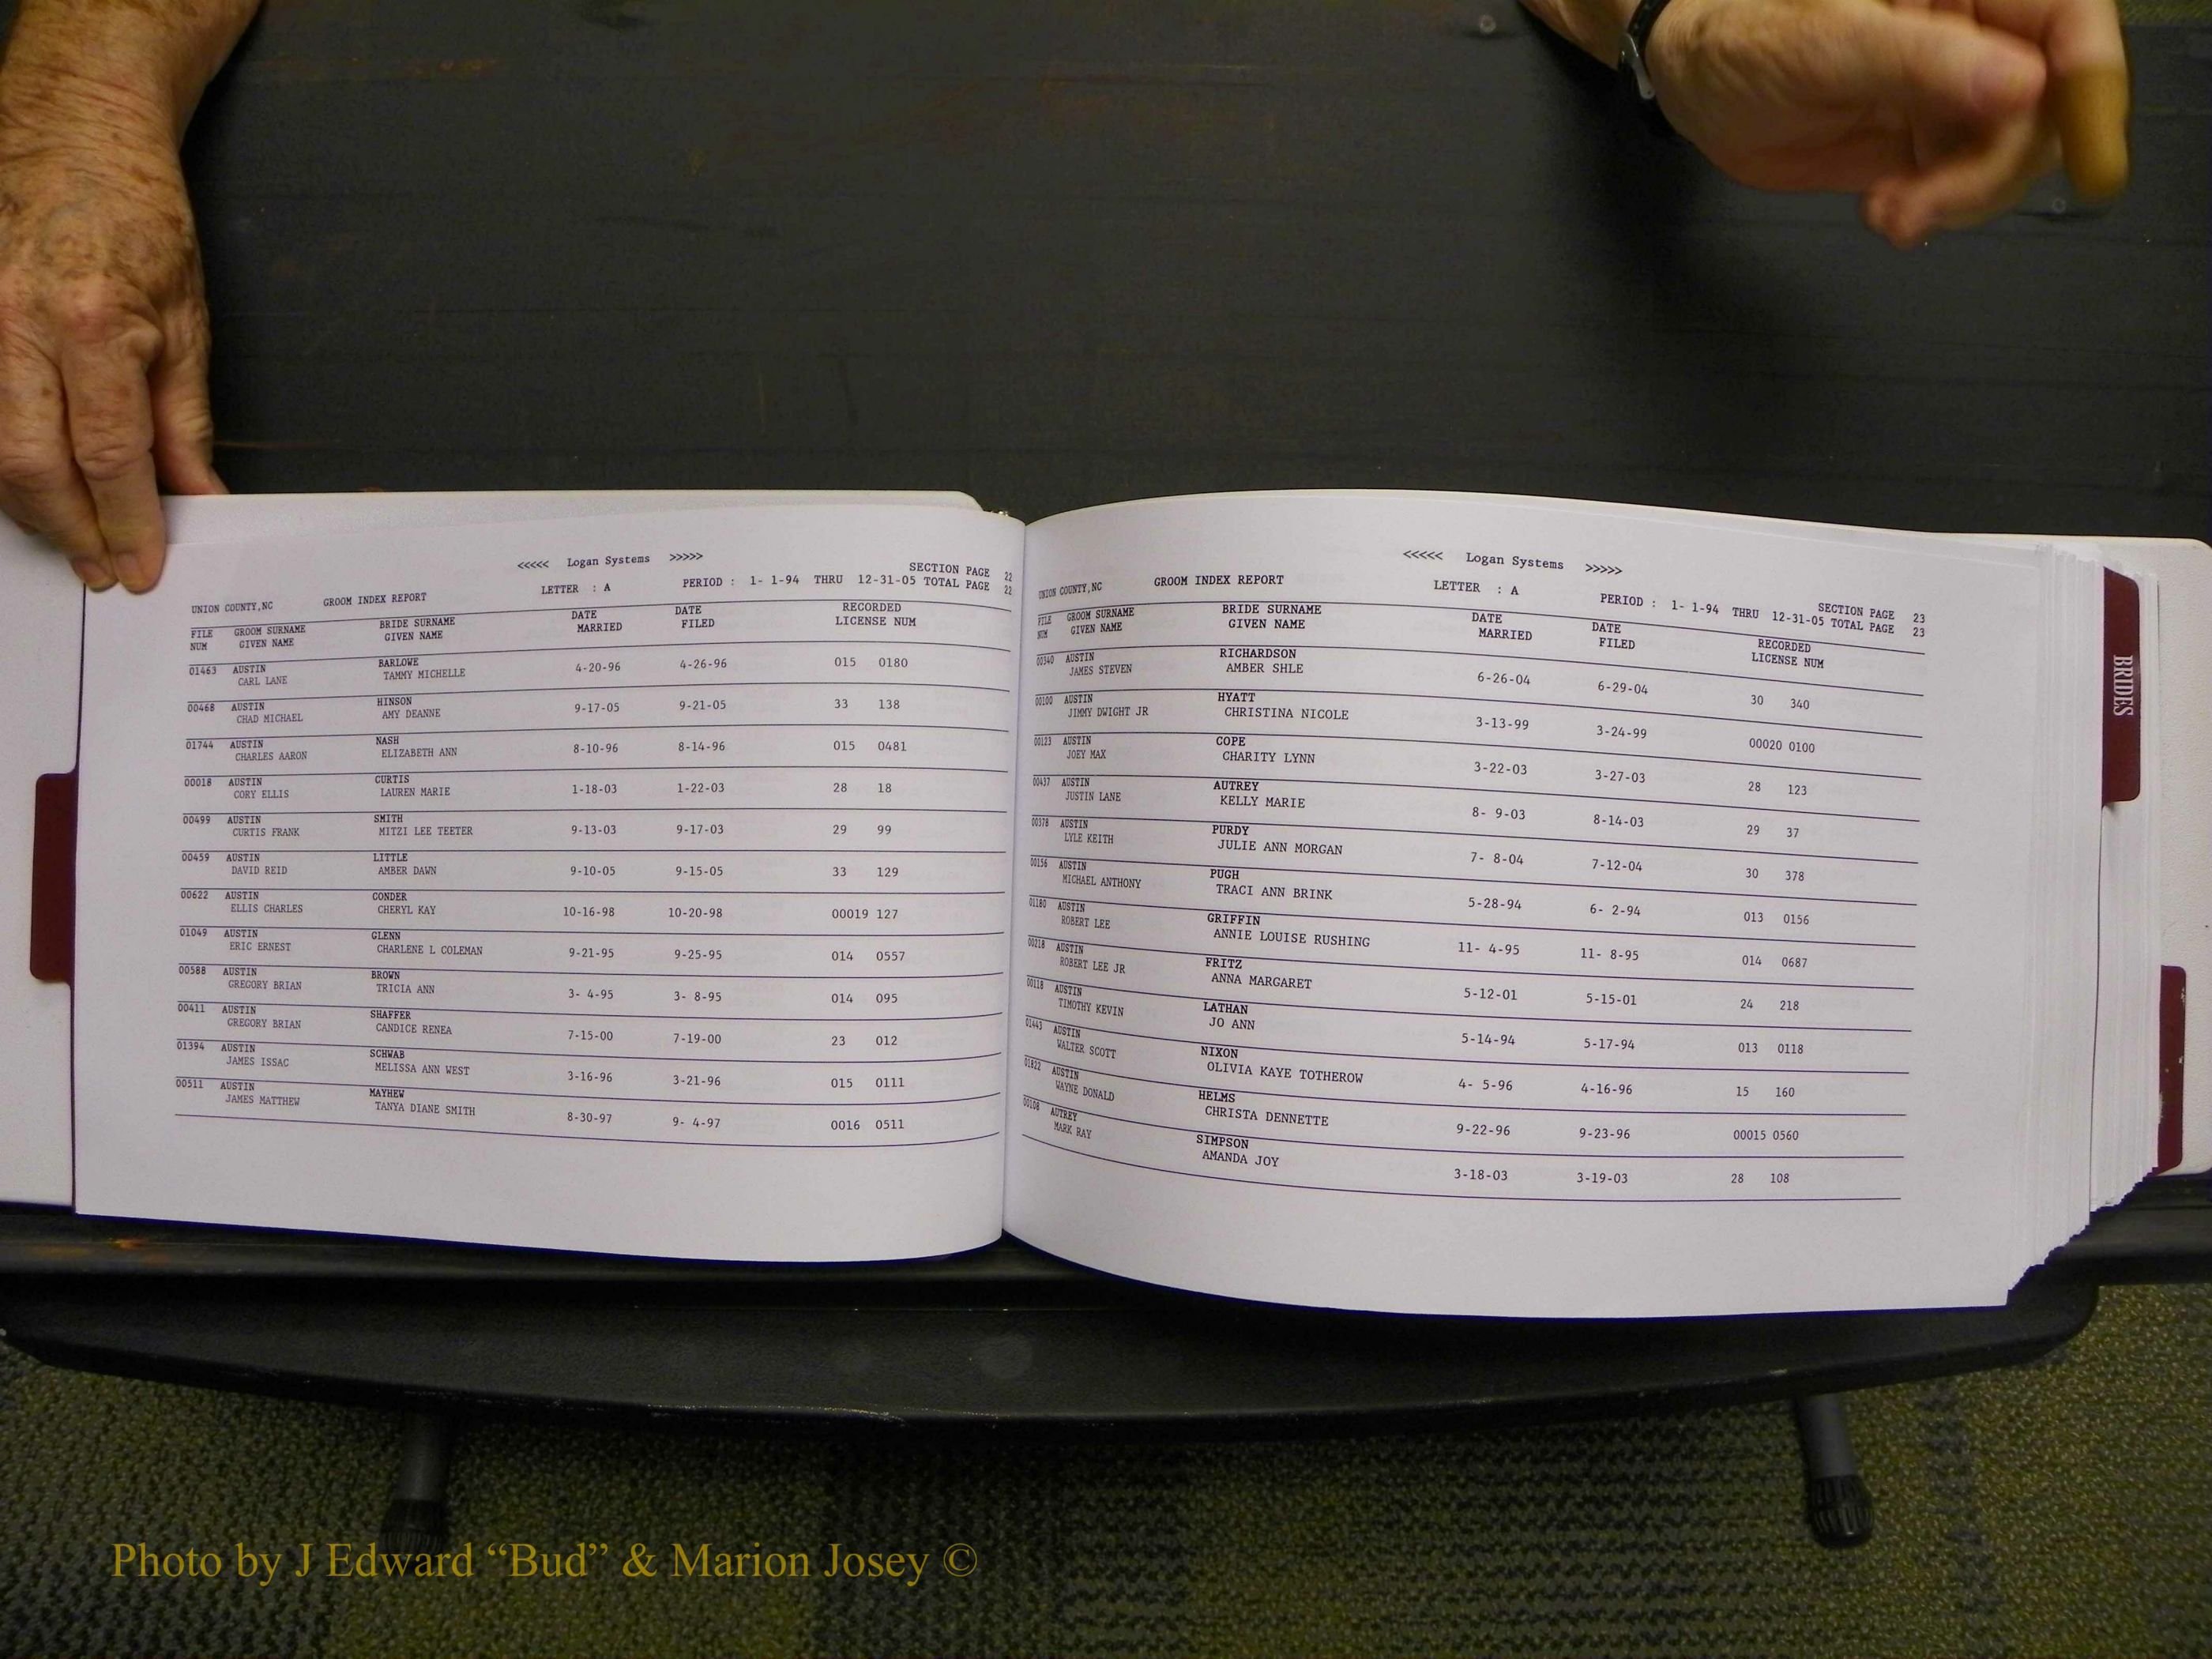 <<<<< Logan Systems >>>>>
SECTION PAGE 22
UNION COUNTY,NC GROOM INDEX REPORT LETTER : A PERIOD : 1- 1-94 THRU 12-31-05 TOTAL PAGE 22
FILE GROOM SURNAME BRIDE SURNAME DATE DATE RECORDED
NUM GIVEN NAME GIVEN NAME MARRIED FILED LICENSE NUM
01463 AUSTIN BARLOWE 4-20-96 4-26-96 015 0180
CARL LANE TAMMY MICHELLE
00468 AUSTIN HINSON 9-17-05 9-21-05 33 138
CHAD MICHAEL AMY DEANNE
01744 AUSTIN NASH 8-10-96 8-14-96 015 0481
CHARLES AARON ELIZABETH ANN
00018 AUSTIN CURTIS 1-18-03 1-22-03 28 18
CORY ELLIS LAUREN MARIE
00499 AUSTIN SMITH 9-13-03 9-17-03 29 99
CURTIS FRANK MITZI LEE TEETER
00459 AUSTIN LITTLE 9-10-05 9-15-05 33 129
DAVID REID AMBER DAWN
00622 AUSTIN CONDER 10-16-98 10-20-98 00019 127
ELLIS CHARLES CHERYL KAY
01049 AUSTIN GLENN 9-21-95 9-25-95 014 0557
ERIC ERNEST CHARLENE L COLEMAN
00588 AUSTIN BROWN 3- 4-95 3- 8-95 014 095
GREGORY BRIAN TRICIA ANN
00411 AUSTIN SHAFFER 7-15-00 7-19-00 23 012
GREGORY BRIAN CANDICE RENEA
01394 AUSTIN SCHWAB 3-16-96 3-21-96 015 0111
JAMES ISSAC MELISSA ANN WEST
00511 AUSTIN MAYHEW 8-30-97 9- 4-97 0016 0511
JAMES MATTHEW TANYA DIANE SMITH
<<<<< Logan Systems >>>>>
SECTION PAGE 23
UNION COUNTY,NC GROOM INDEX REPORT LETTER : A PERIOD : 1- 1-94 THRU 12-31-05 TOTAL PAGE 23
FILE GROOM SURNAME BRIDE SURNAME DATE DATE RECORDED
NUM GIVEN NAME GIVEN NAME MARRIED FILED LICENSE NUM
00340 AUSTIN RICHARDSON 6-26-04 6-29-04 30 340
JAMES STEVEN AMBER SHLE
00100 AUSTIN HYATT 3-13-99 3-24-99 00020 0100
JIMMY DWIGHT JR CHRISTINA NICOLE
00123 AUSTIN COPE 3-22-03 3-27-03 28 123
JOEY MAX CHARITY LYNN
00437 AUSTIN AUTREY 8- 9-03 8-14-03 29 37
JUSTIN LANE KELLY MARIE
00378 AUSTIN PURDY 7- 8-04 7-12-04 30 378
LYLE KEITH JULIE ANN MORGAN
00156 AUSTIN PUGH 5-28-94 6- 2-94 013 0156
MICHAEL ANTHONY TRACI ANN BRINK
01180 AUSTIN GRIFFIN 11- 4-95 11- 8-95 014 0687
ROBERT LEE ANNIE LOUISE RUSHING
00218 AUSTIN FRITZ 5-12-01 5-15-01 24 218
ROBERT LEE JR ANNA MARGARET
00118 AUSTIN LATHAN 5-14-94 5-17-94 013 0118
TIMOTHY KEVIN JO ANN
01443 AUSTIN NIXON 4- 5-96 4-16-96 15 160
WALTER SCOTT OLIVIA KAYE TOTHEROW
01822 AUSTIN HELMS 9-22-96 9-23-96 00015 0560
WAYNE DONALD CHRISTA DENNETTE
00108 AUTREY SIMPSON 3-18-03 3-19-03 28 108
MARK RAY AMANDA JOY
BRIDES
Photo by J Edward “Bud” & Marion Josey ©